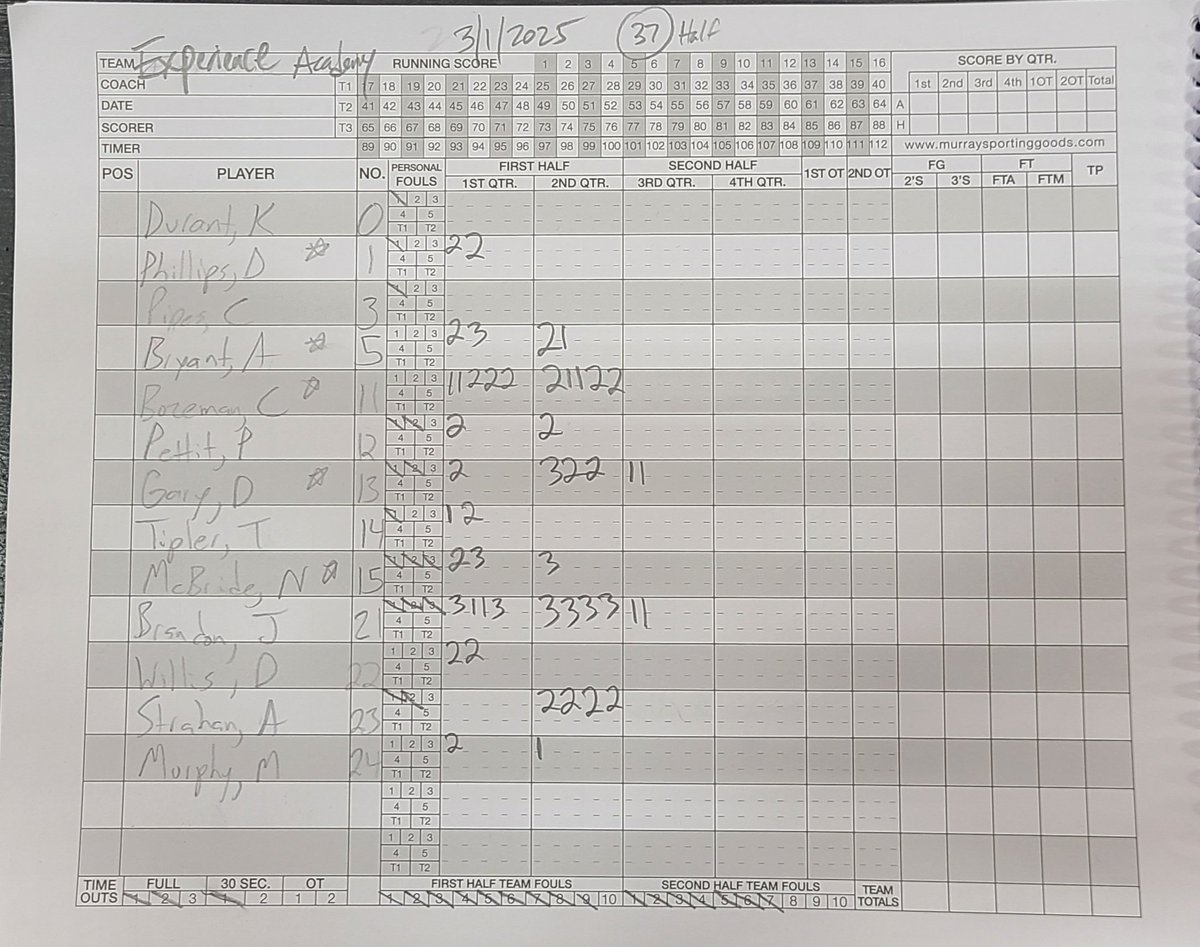 3/1/2025 37 Half
TEAM Experience Academy RUNNING SCORE 1 2 3 4 5 6 7 8 9 10 11 12 13 14 15 16 SCORE BY QTR.
COACH T1 17 18 19 20 21 22 23 24 25 26 27 28 29 30 31 32 33 34 35 36 37 38 39 40 1st 2nd 3rd 4th 1OT 2OT Total
DATE T2 41 42 43 44 45 46 47 48 49 50 51 52 53 54 55 56 57 58 59 60 61 62 63 64 A
SCORER T3 65 66 67 68 69 70 71 72 73 74 75 76 77 78 79 80 81 82 83 84 85 86 87 88 H
TIMER 89 90 91 92 93 94 95 96 97 98 99 100 101 102 103 104 105 106 107 108 109 110 111 112 www.murraysportinggoods.com
POS PLAYER NO. PERSONAL FOULS FIRST HALF SECOND HALF 1ST OT 2ND OT FG FT TP
1ST QTR. 2ND QTR. 3RD QTR. 4TH QTR. 2'S 3'S FTA FTM
Durant, K 0 1 2 3
4 5
T1 T2
Phillips, D ☆ 1 1 2 3 22
4 5
T1 T2
Pipes, C 3 1 2 3
4 5
T1 T2
Bryant, A ☆ 5 1 2 3 23 21
4 5
T1 T2
Bozeman, C ☆ 11 1 2 3 11222 21122
4 5
T1 T2
Pettit, P 12 1 2 3 2 2
4 5
T1 T2
Gary, D ☆ 13 1 2 3 2 322 11
4 5
T1 T2
Tipler, T 14 1 2 3 12
4 5
T1 T2
McBride, N ☆ 15 1 2 3 23 3
4 5
T1 T2
Brandon, J 21 1 2 3 3113 3333 11
4 5
T1 T2
Willis, D 22 1 2 3 22
4 5
T1 T2
Strahan, A 23 1 2 3 2222
4 5
T1 T2
Murphy, M 24 1 2 3 2 1
4 5
T1 T2
1 2 3
4 5
T1 T2
1 2 3
4 5
T1 T2
TIME OUTS FULL 30 SEC. OT FIRST HALF TEAM FOULS SECOND HALF TEAM FOULS TEAM TOTALS
1 2 3 1 2 1 2 1 2 3 4 5 6 7 8 9 10 1 2 3 4 5 6 7 8 9 10